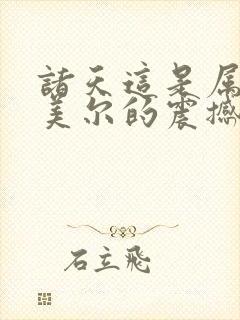 諸天這是屬
美尔的震撼
石立飛